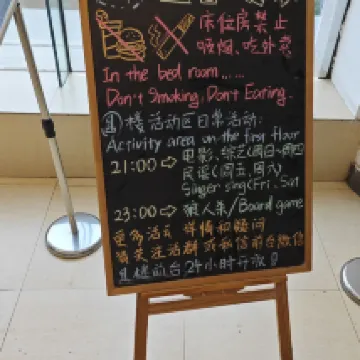 床位房禁止
吸烟、吃外卖
In the bed room......
Don't Smoking, Don't Eating.
①楼活动区日常活动:
Activity area on the first floor
21:00⇨电影、综艺(周日-周四
民谣(周五、周六)
Singer sing(Fri、Sat
23:00⇨狼人杀/Board game
更多活动详情和疑问
请关注活群或私信前台微信
前台24小时开放!